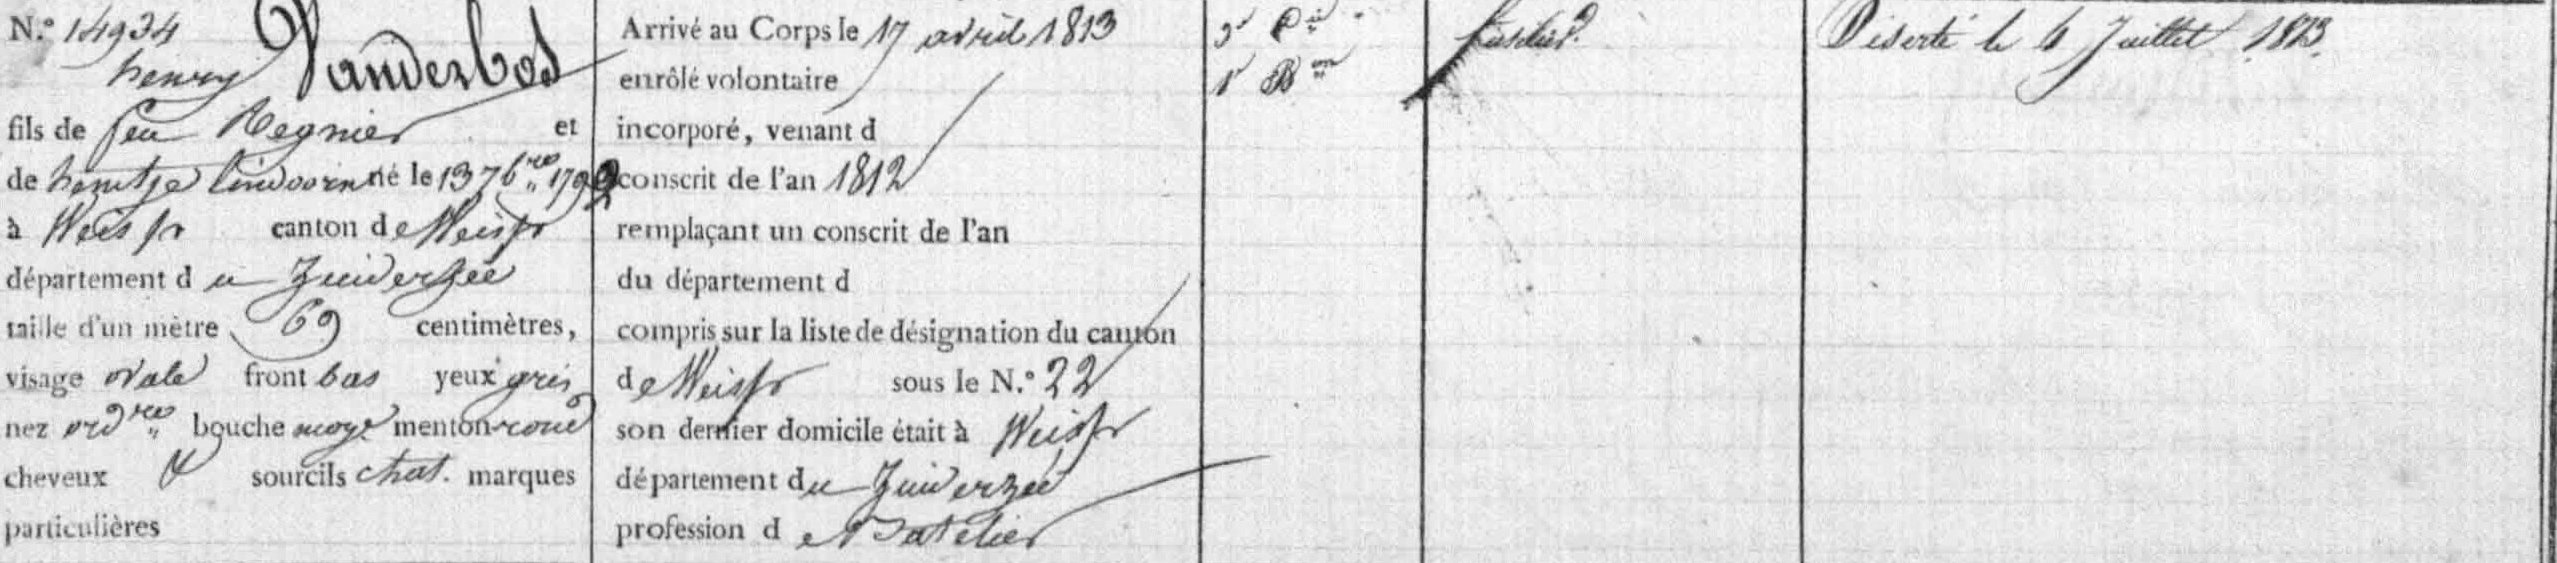 N.º 14934
henry Vanderbos
fils de feu Regnier et
de hentje né le 13 7bre 1792
à Weisp canton de Weisp
département du Zuiderzée
taille d'un mètre 69 centimètres,
visage ovale front bas yeux gris
nez ordre bouche moye menton rond
cheveux & sourcils chat. marques
particulières
Arrivé au Corps le 17 avril 1813
enrôlé volontaire
incorporé, venant d
conscrit de l'an 1812
remplaçant un conscrit de l'an
du département d
compris sur la liste de désignation du canton
de Weisp sous le N.º 22
son dernier domicile était à Weisp
département du Zuiderzée
profession de Batelier
3e Cie
1r Bon
fusilier
Déserté le 6 Juillet 1813.